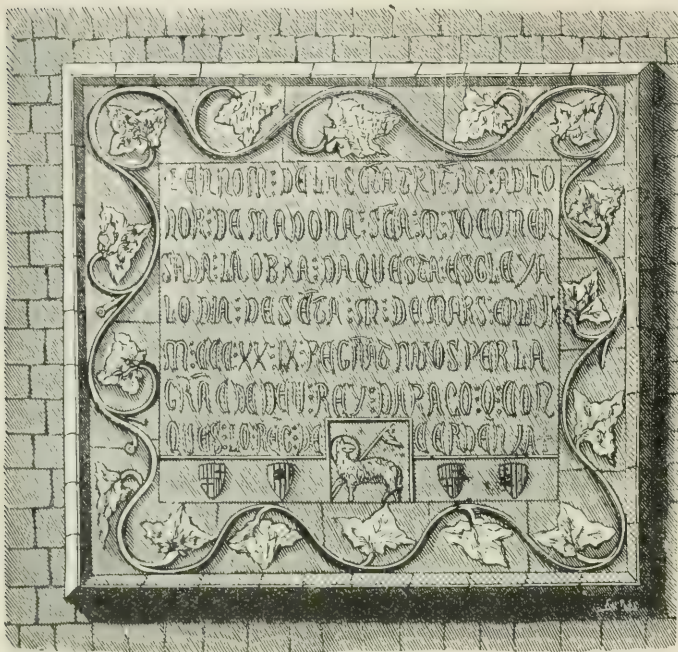 : EN NOM : DE LA SCTA TRITAT : A DHO
NOR : DE MADONA : STA : M : FO COMEN
SADA : LA OBRA : DAQUESTA : ESGLEYA
LO DIA : DE SCTA : M : DE MARS : EN LAY
M : CCC : XX : IX : REGNAT NANFOS PER LA
GRA C DE DEU : REY : DARAGO : Q : CON
QUES : LO REG : DE CERDENYA :